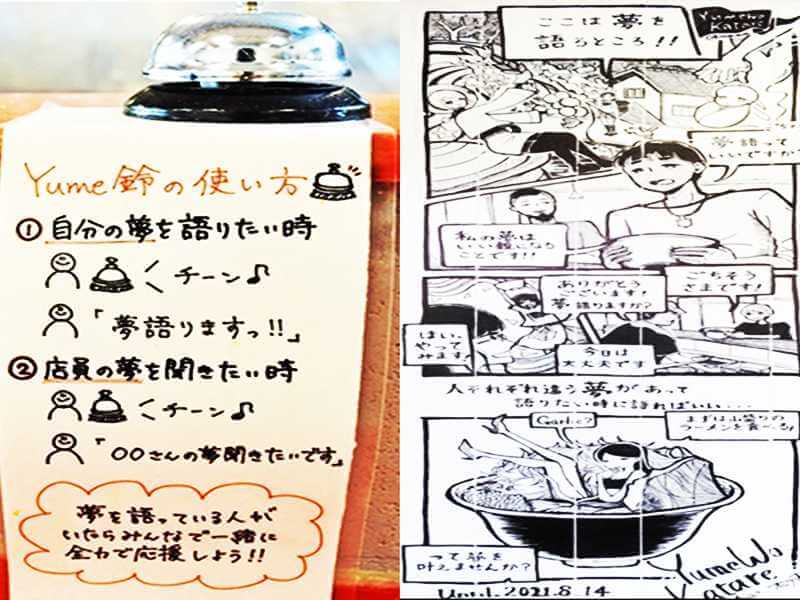 Yume鈴の使い方
① 自分の夢を語りたい時
チーン♪
「夢語りますっ!!」
② 店員の夢を聞きたい時
チーン♪
「〇〇さんの夢聞きたいです」
夢を語っている人が
いたらみんなで一緒に
全力で応援しよう!!
ここは夢を
語るところ!!
YumeWo
Katare
夢語って
いいですか?
私の夢は
いい親になる
ことです!!
ありがとう
ございます!
夢語りますか?
ごちそう
さまです!
はい、
やって
みます
今日は
大丈夫です
人それぞれ違う夢があって
語りたい時に語ればいい...
Garlic?
まずは山盛りの
ラーメンを食べる!
って夢を
叶えませんか?
YumeWo
Katare
Until 2021.8.14